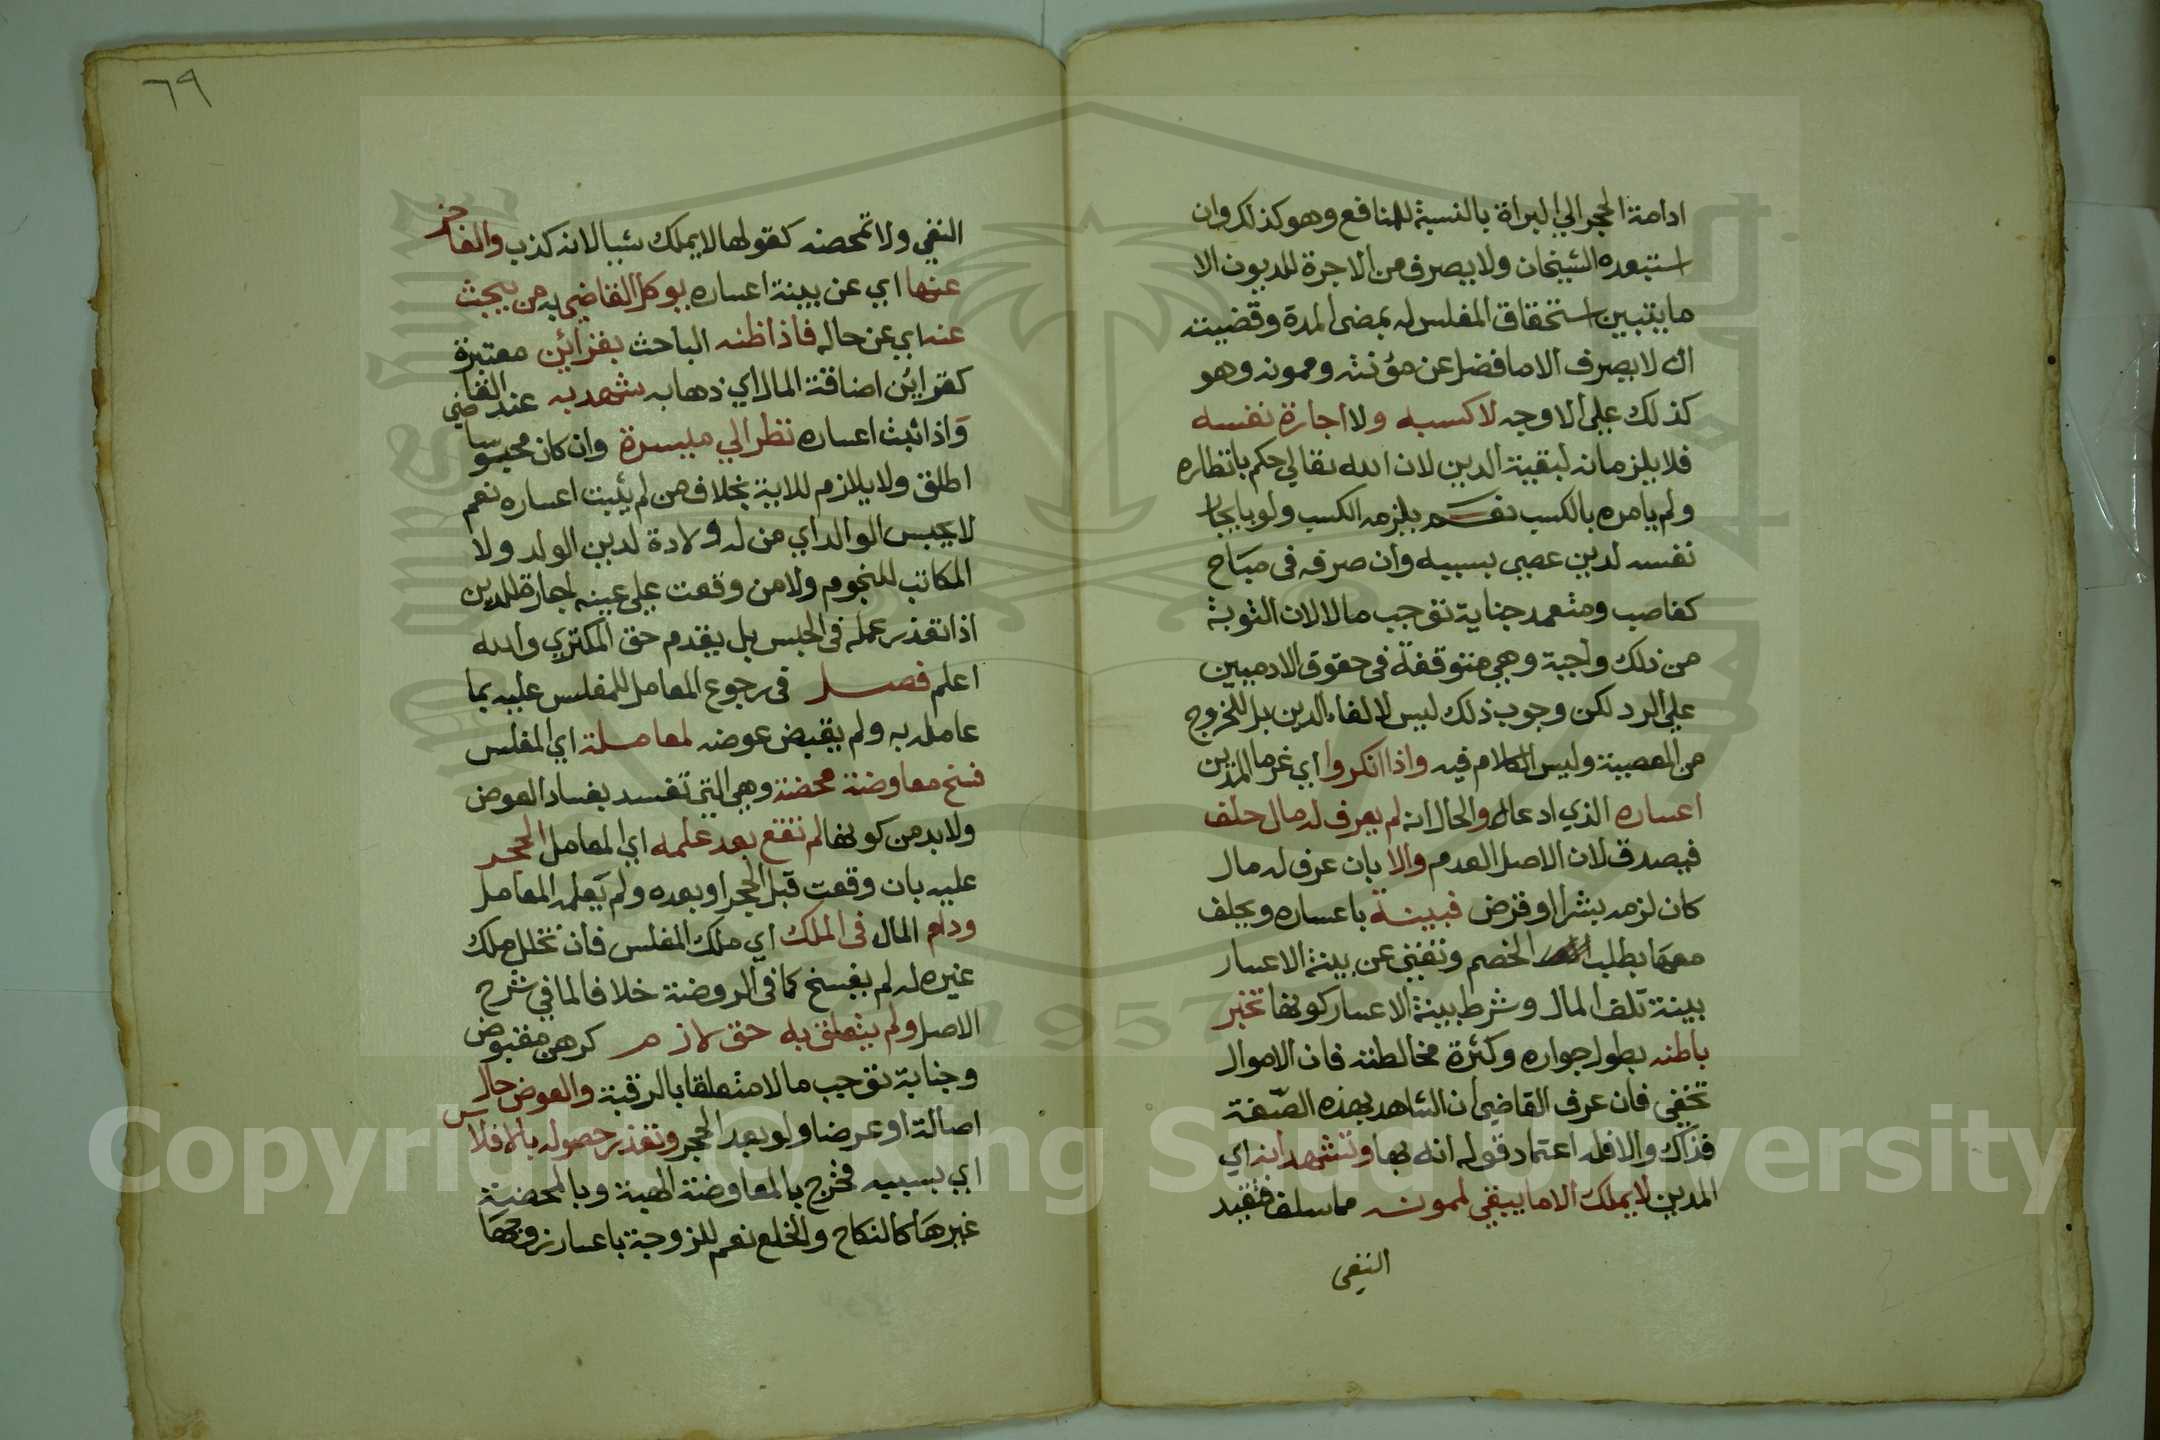 ادامة الحجر الي البراة بالنسبة للمنافع وهو كذلك وان
استبعده الشيخان ولا يصرف من الاجرة للديون الا
ما يتبين استحقاق المفلس له بمضي المدة وقضيته
ان لا يصرف الا ما فضل عن مؤنته وممونه وهو
كذلك على الاوجه لا كسبه ولا اجارة نفسه
فلا يلزمانه لبقية الدين لان الله تعالي حكم بانظاره
ولم يامره بالكسب نعم يلزمه الكسب ولو بايجار
نفسه لدين عصي بسببه وان صرفه في مباح
كغاصب ومتعمد جناية توجب مالا لان التوبة
من ذلك واجبة وهي متوقفة في حقوق الادميين
علي الرد لكن وجوب ذلك ليس لايفاء الدين بل للخروج
من المعصية وليس الكلام فيه واذا انكروا اي غرما المدين
اعساره الذي ادعاه والحال انه لم يعرف له مال حلف
فيصدق لان الاصل العدم والا بان عرف له مال
كان لزمه بشرا او قرض فبينة باعساره ويحلف
معها بطلب الخصم وتغني عن بينة الاعسار
بينة تلف المال وشرط بينة الاعسار كونها تخبر
باطنه بطول جواره وكثرة مخالطته فان الاموال
تخفي فان عرف القاضي ان الشاهد بهذه الصفة
فذاك والا فله اعتماد قوله انه بها وتشهد انه اي
المدين لا يملك الا ما يبقي لممونه مما سلف فتقيد
النفي
٦٩
النفي ولا تمحضه كقولها لا يملك شيا لانه كذب والعاجز
عنها اي عن بينة اعساره يوكل القاضي به من يبحث
عنه اي عن حاله فاذا ظنه الباحث بقرائن معتبرة
كقرائن اضاقة المال اي ذهابه شهد به عند القاضي
واذا ثبت اعساره نظر الي ميسرة وان كان محبوسا
اطلق ولا يلازم للاية بخلاف من لم يثبت اعساره نعم
لا يحبس الوالد اي من له ولادة لدين الولد ولا
المكاتب للنجوم ولا من وقعت علي عينه اجارة للدين
اذا تعذر عمله في الحبس بل يقدم حق المكتري والله
اعلم فصل في رجوع المعامل للمفلس عليه بما
عامله به ولم يقبض عوضه لمعاملة اي المفلس
فسخ معاوضة محضة وهي التي تفسد بفساد العوض
ولا بد من كونها لم تقع بعد علمه اي المعامل الحجر
عليه بان وقعت قبل الحجر او بعده ولم يعلمه المعامل
ودام المال في الملك اي ملك المفلس فان تخلل ملك
غيره له لم يفسخ كما في الروضة خلافا لما في شرح
الاصل ولم يتعلق به حق لازم كرهن مقبوض
وجناية توجب مالا متعلقا بالرقبة والعوض حال
اصالة او عرضا ولو بعد الحجر وتعذر حصوله بالافلاس
اي بسببه فخرج بالمعاوضة الهبة وبالمحضة
غيرها كالنكاح والخلع نعم للزوجة باعسار زوجها
Copyright © King Saud University
1957